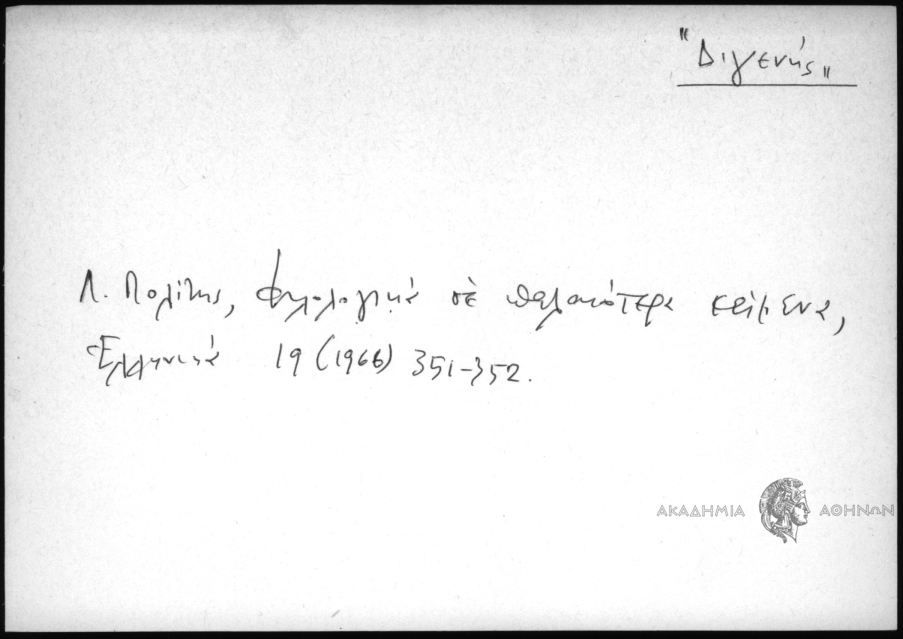 "Διγενής"
Λ. Πολίτης, Φιλολογικά σὲ παλαιότερα κείμενα,
Ἑλληνικά 19 (1966) 351-352.
ΑΚΑΔΗΜΙΑ ΑΘΗΝΩΝ